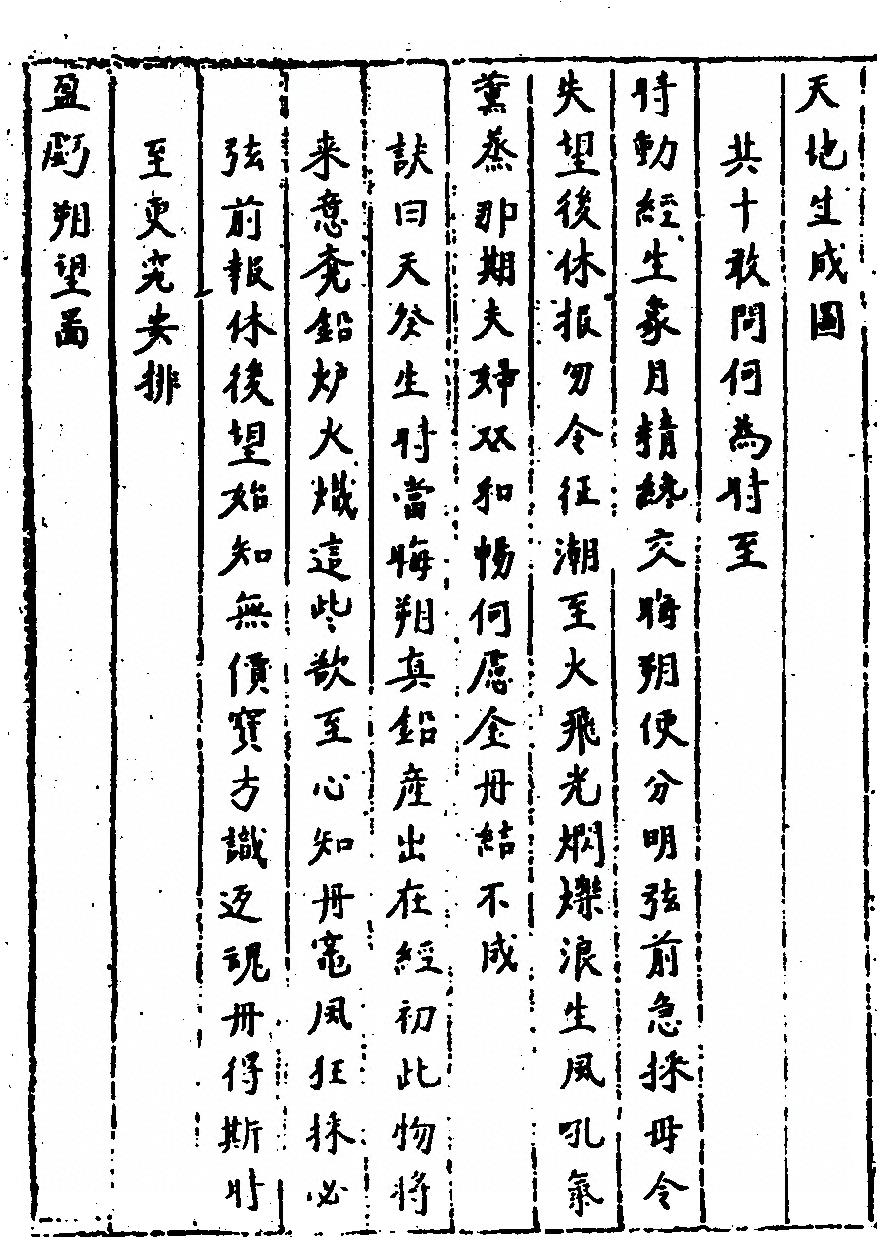 天地生成圖
共十敢問何為时至
时動經生象月精終交晦朔便分明弦前急採毋令
失望後休报勿令徃潮至火飛光熌爍浪生風吼氣
薰蒸那期夫婦双和暢何愿金丹結不成
訣曰天癸生时當晦朔真鉛産出在經初此物将
来意竞鉛炉火熾這些欲至心知丹竈風狂採必
弦前報休後望始知無價寳方識返魂丹得斯时
至更究安排
盈虧朔望啚